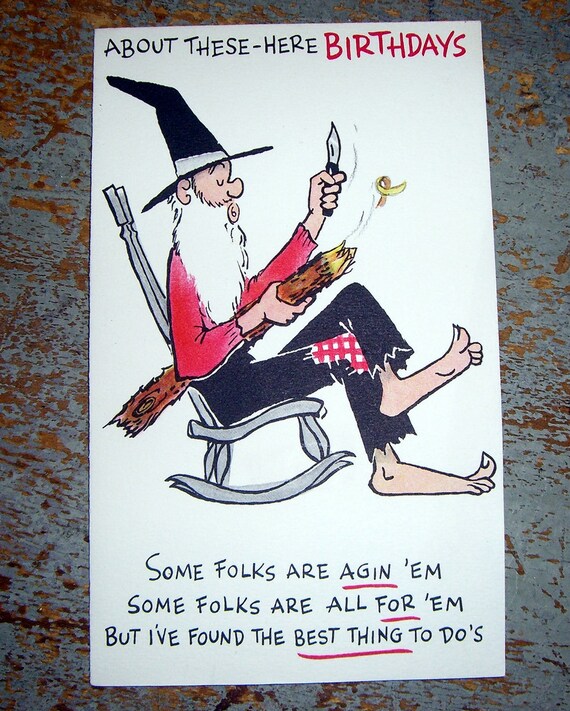 ABOUT THESE-HERE BIRTHDAYS
SOME FOLKS ARE AGIN 'EM
SOME FOLKS ARE ALL FOR 'EM
BUT I'VE FOUND THE BEST THING TO DO'S